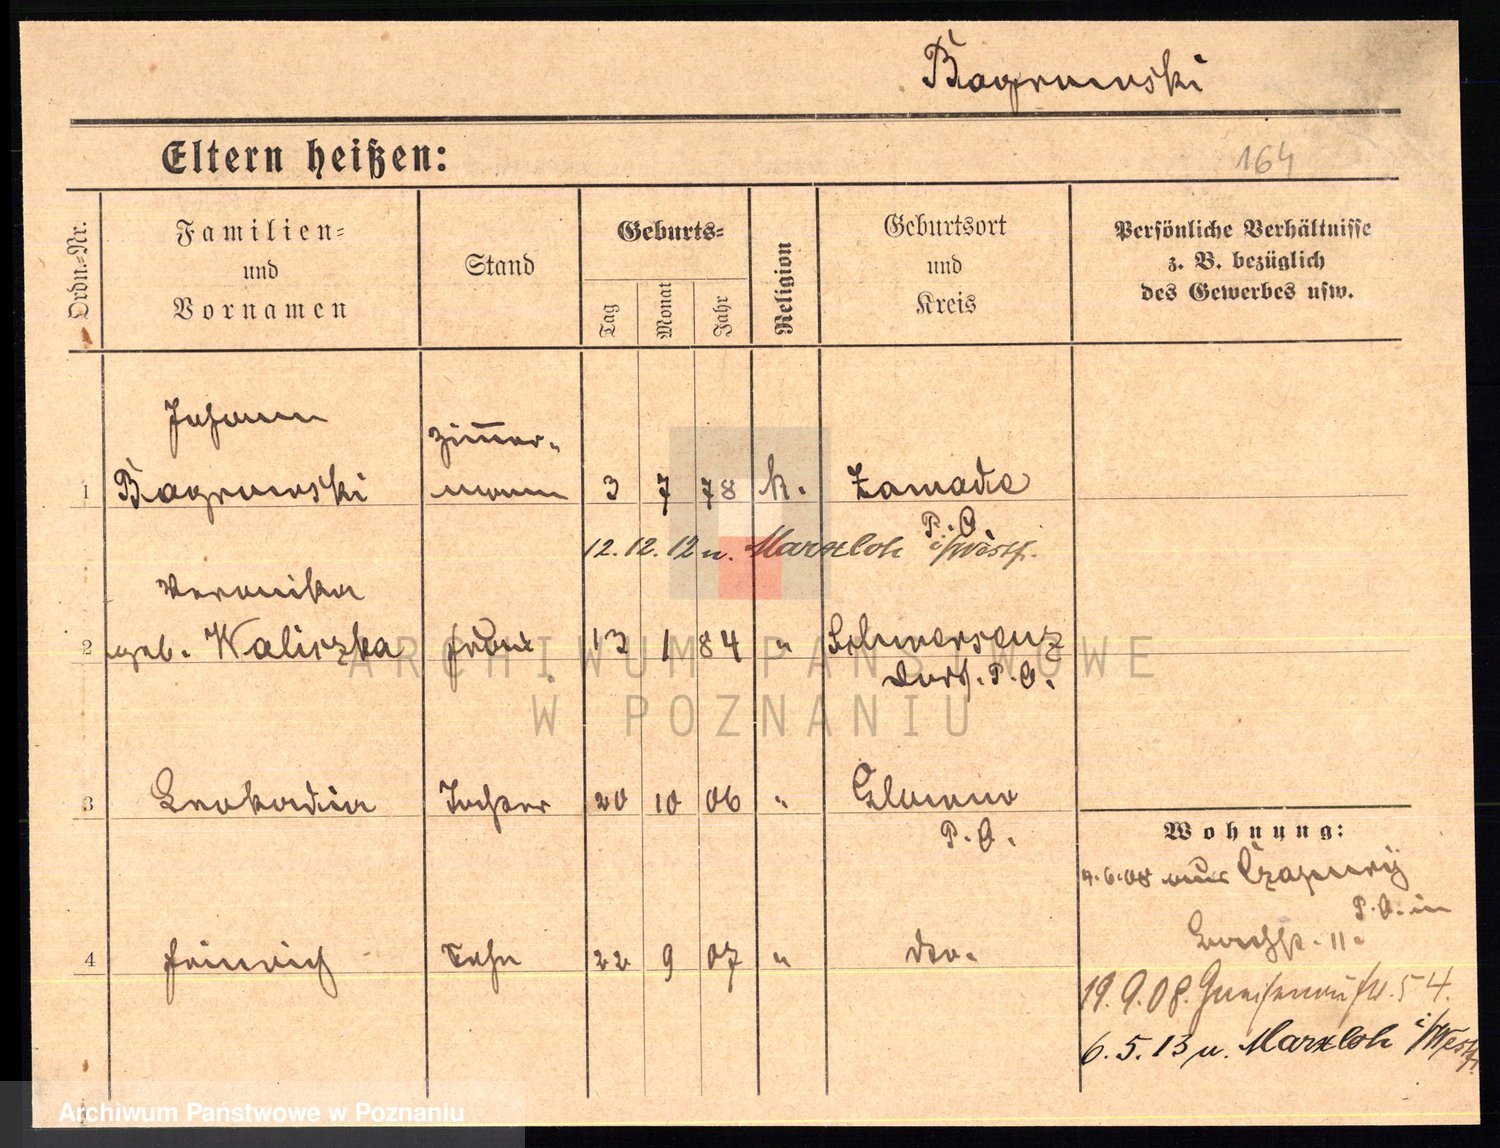 Bagrowski
Eltern heißen:
164
Ordn.-Nr.
Familien-
und
Vornamen
Stand
Geburts-
Tag
Monat
Jahr
Religion
Geburtsort
und
Kreis
Persönliche Verhältnisse
z. B. bezüglich
des Gewerbes usw.
Johann
Zimmer-
1 Bagrowski mann 3 7 78 k. Zawade
P. O.
12.12.12 n. Marxloh i/Westf.
Veronika
2 geb. Waliszka Frau 13 1 84 " Schwersenz
Dorf. P. O.
3 Leokadia Tochter 20 10 06 " Glowno
P. O.
Wohnung:
4.6.08 aus Czapury
P. O. in
4 Heinrich Sohn 22 9 07 " do.
19.9.08. Gneisenaustr. 54.
6.5.13 n. Marxloh i/Westf.
ARCHIWUM PAŃSTWOWE
W POZNANIU
Archiwum Państwowe w Poznaniu